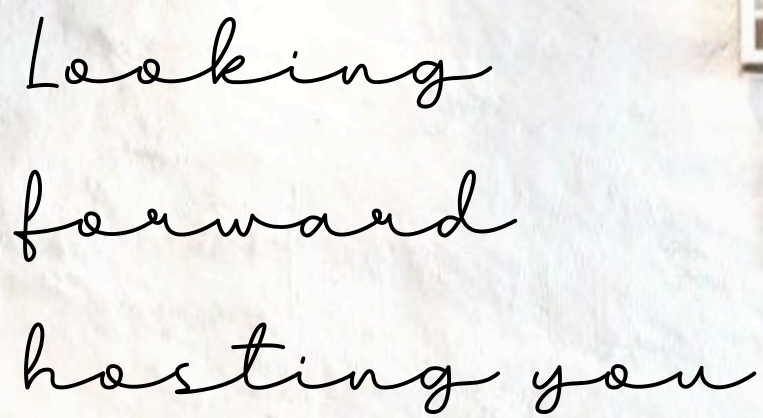 Looking
forward
hosting you